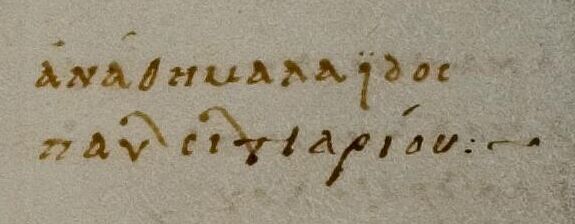 ἀνάθημα λαΐδος
παυλ σιλτιαρίου:~